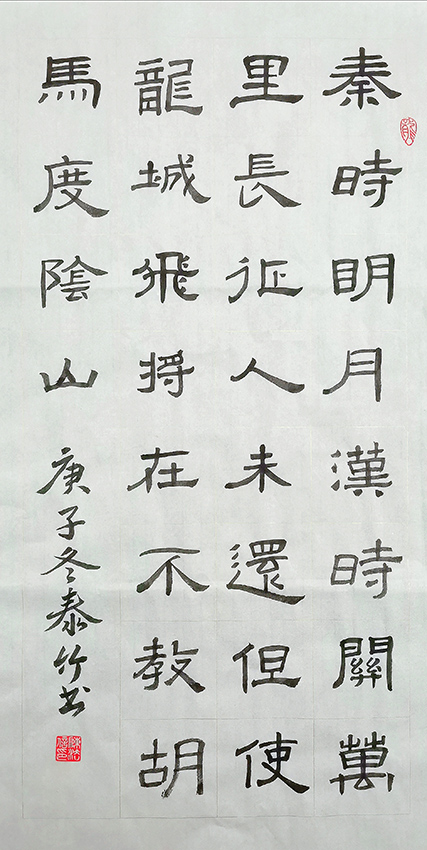 秦時明月漢時關萬
里長征人未還但使
龍城飛將在不教胡
馬度陰山
庚子冬泰竹书